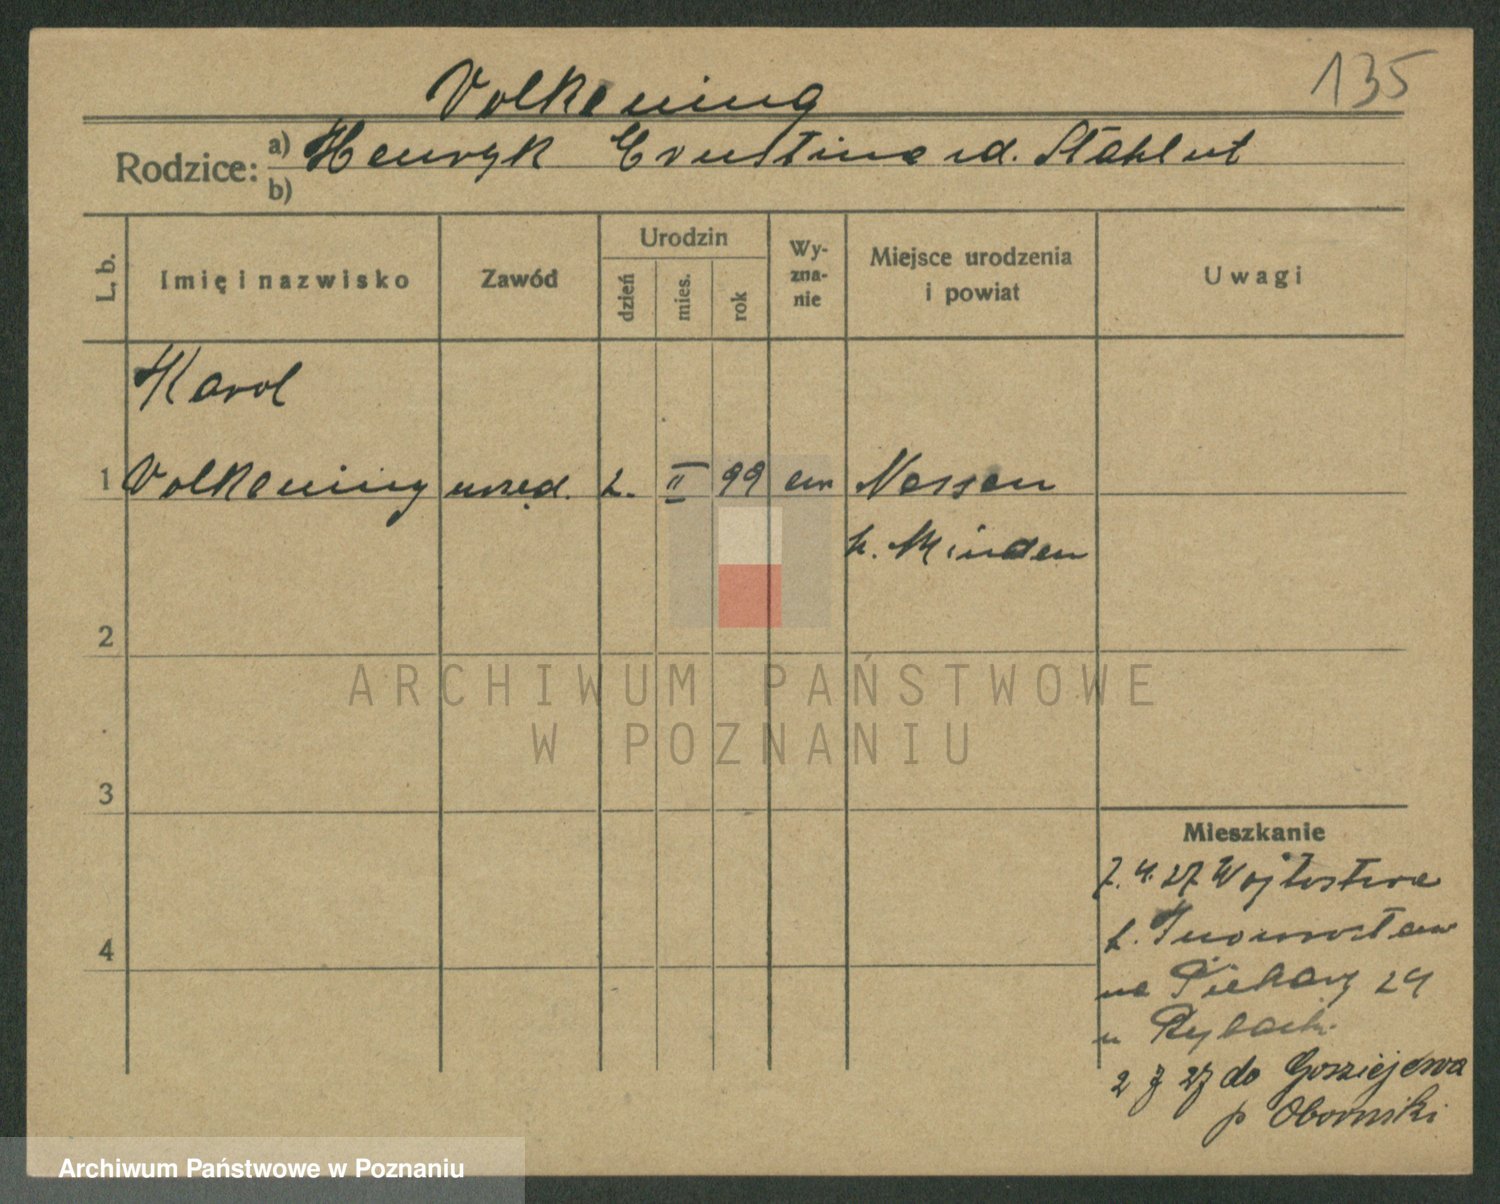 135
Volkening
Rodzice: a) Henryk Ernstine ud. Stahlut
b)
L. b.
Imię i nazwisko
Zawód
Urodzin
dzień
mies.
rok
Wy-
zna-
nie
Miejsce urodzenia
i powiat
Uwagi
Karol
1 Volkening urzęd. 2. II 99 ew Nessen
k. Minden
2
ARCHIWUM PAŃSTWOWE
W POZNANIU
3
Mieszkanie
7. 4. 27 Wojtostwa
p. Inowrocław
4
na Piekary 24
u Rybach.
2 7 27 do Gościejewa
p Oborniki
Archiwum Państwowe w Poznaniu